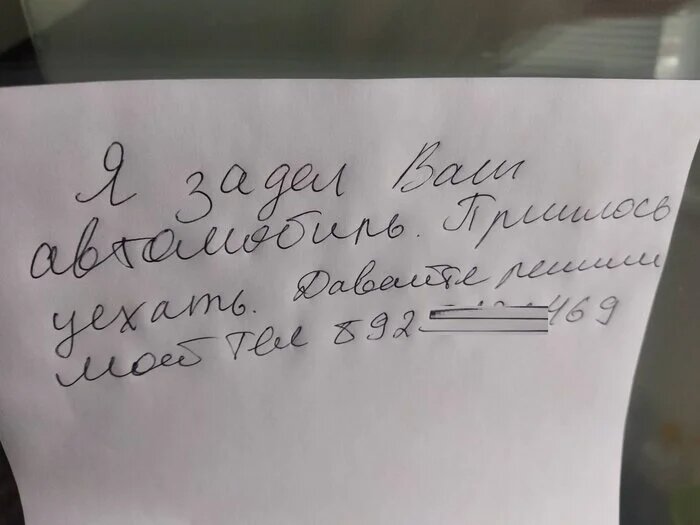 Я задел Ваш
автомобиль. Пришлось
уехать. Давайте решим
мой тел 892 469